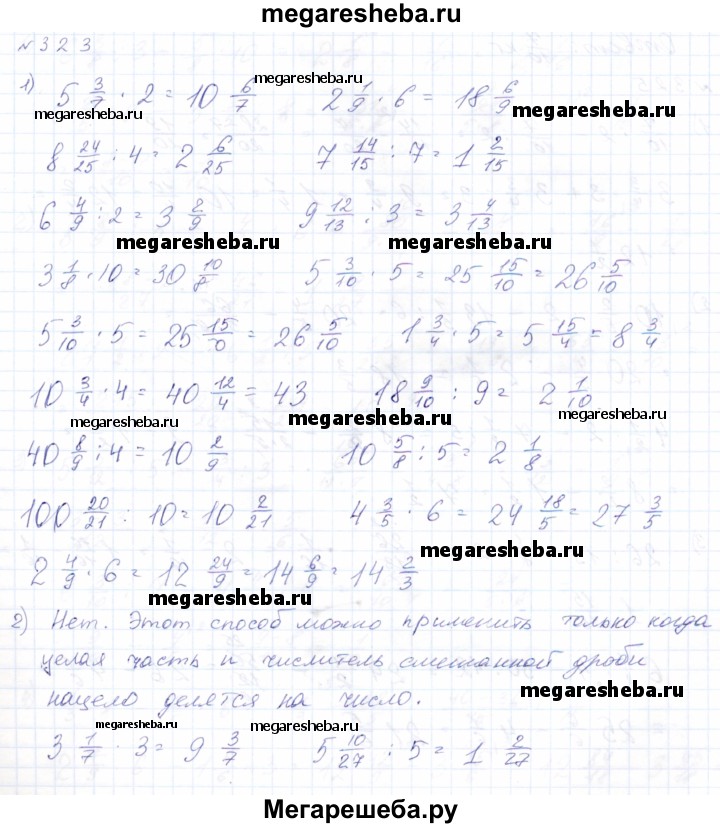 megaresheba.ru
№ 323
1) 5 3/7 · 2 = 10 6/7 megaresheba.ru 2 1/9 · 6 = 18 6/9
megaresheba.ru megaresheba.ru
8 24/25 : 4 = 2 6/25 7 14/15 : 7 = 1 2/15
6 4/9 : 2 = 3 2/9 9 12/13 : 3 = 3 4/13
megaresheba.ru megaresheba.ru
3 1/8 · 10 = 30 10/8 5 3/10 · 5 = 25 15/10 = 26 5/10
5 3/10 · 5 = 25 15/0 = 26 5/10 1 3/4 · 5 = 5 15/4 = 8 3/4
10 3/4 · 4 = 40 12/4 = 43 18 9/10 : 9 = 2 1/10
megaresheba.ru megaresheba.ru megaresheba.ru
40 8/9 : 4 = 10 2/9 10 5/8 : 5 = 2 1/8
100 20/21 : 10 = 10 2/21 4 3/5 · 6 = 24 18/5 = 27 3/5
megaresheba.ru
2 4/9 · 6 = 12 24/9 = 14 6/9 = 14 2/3
megaresheba.ru
2) Нет. Этот способ можно применить только когда
целая часть и числитель смешанной дроби
нацело делятся на число.
megaresheba.ru
megaresheba.ru megaresheba.ru
3 1/7 · 3 = 9 3/7 5 10/27 : 5 = 1 2/27
Мегарешеба.ру